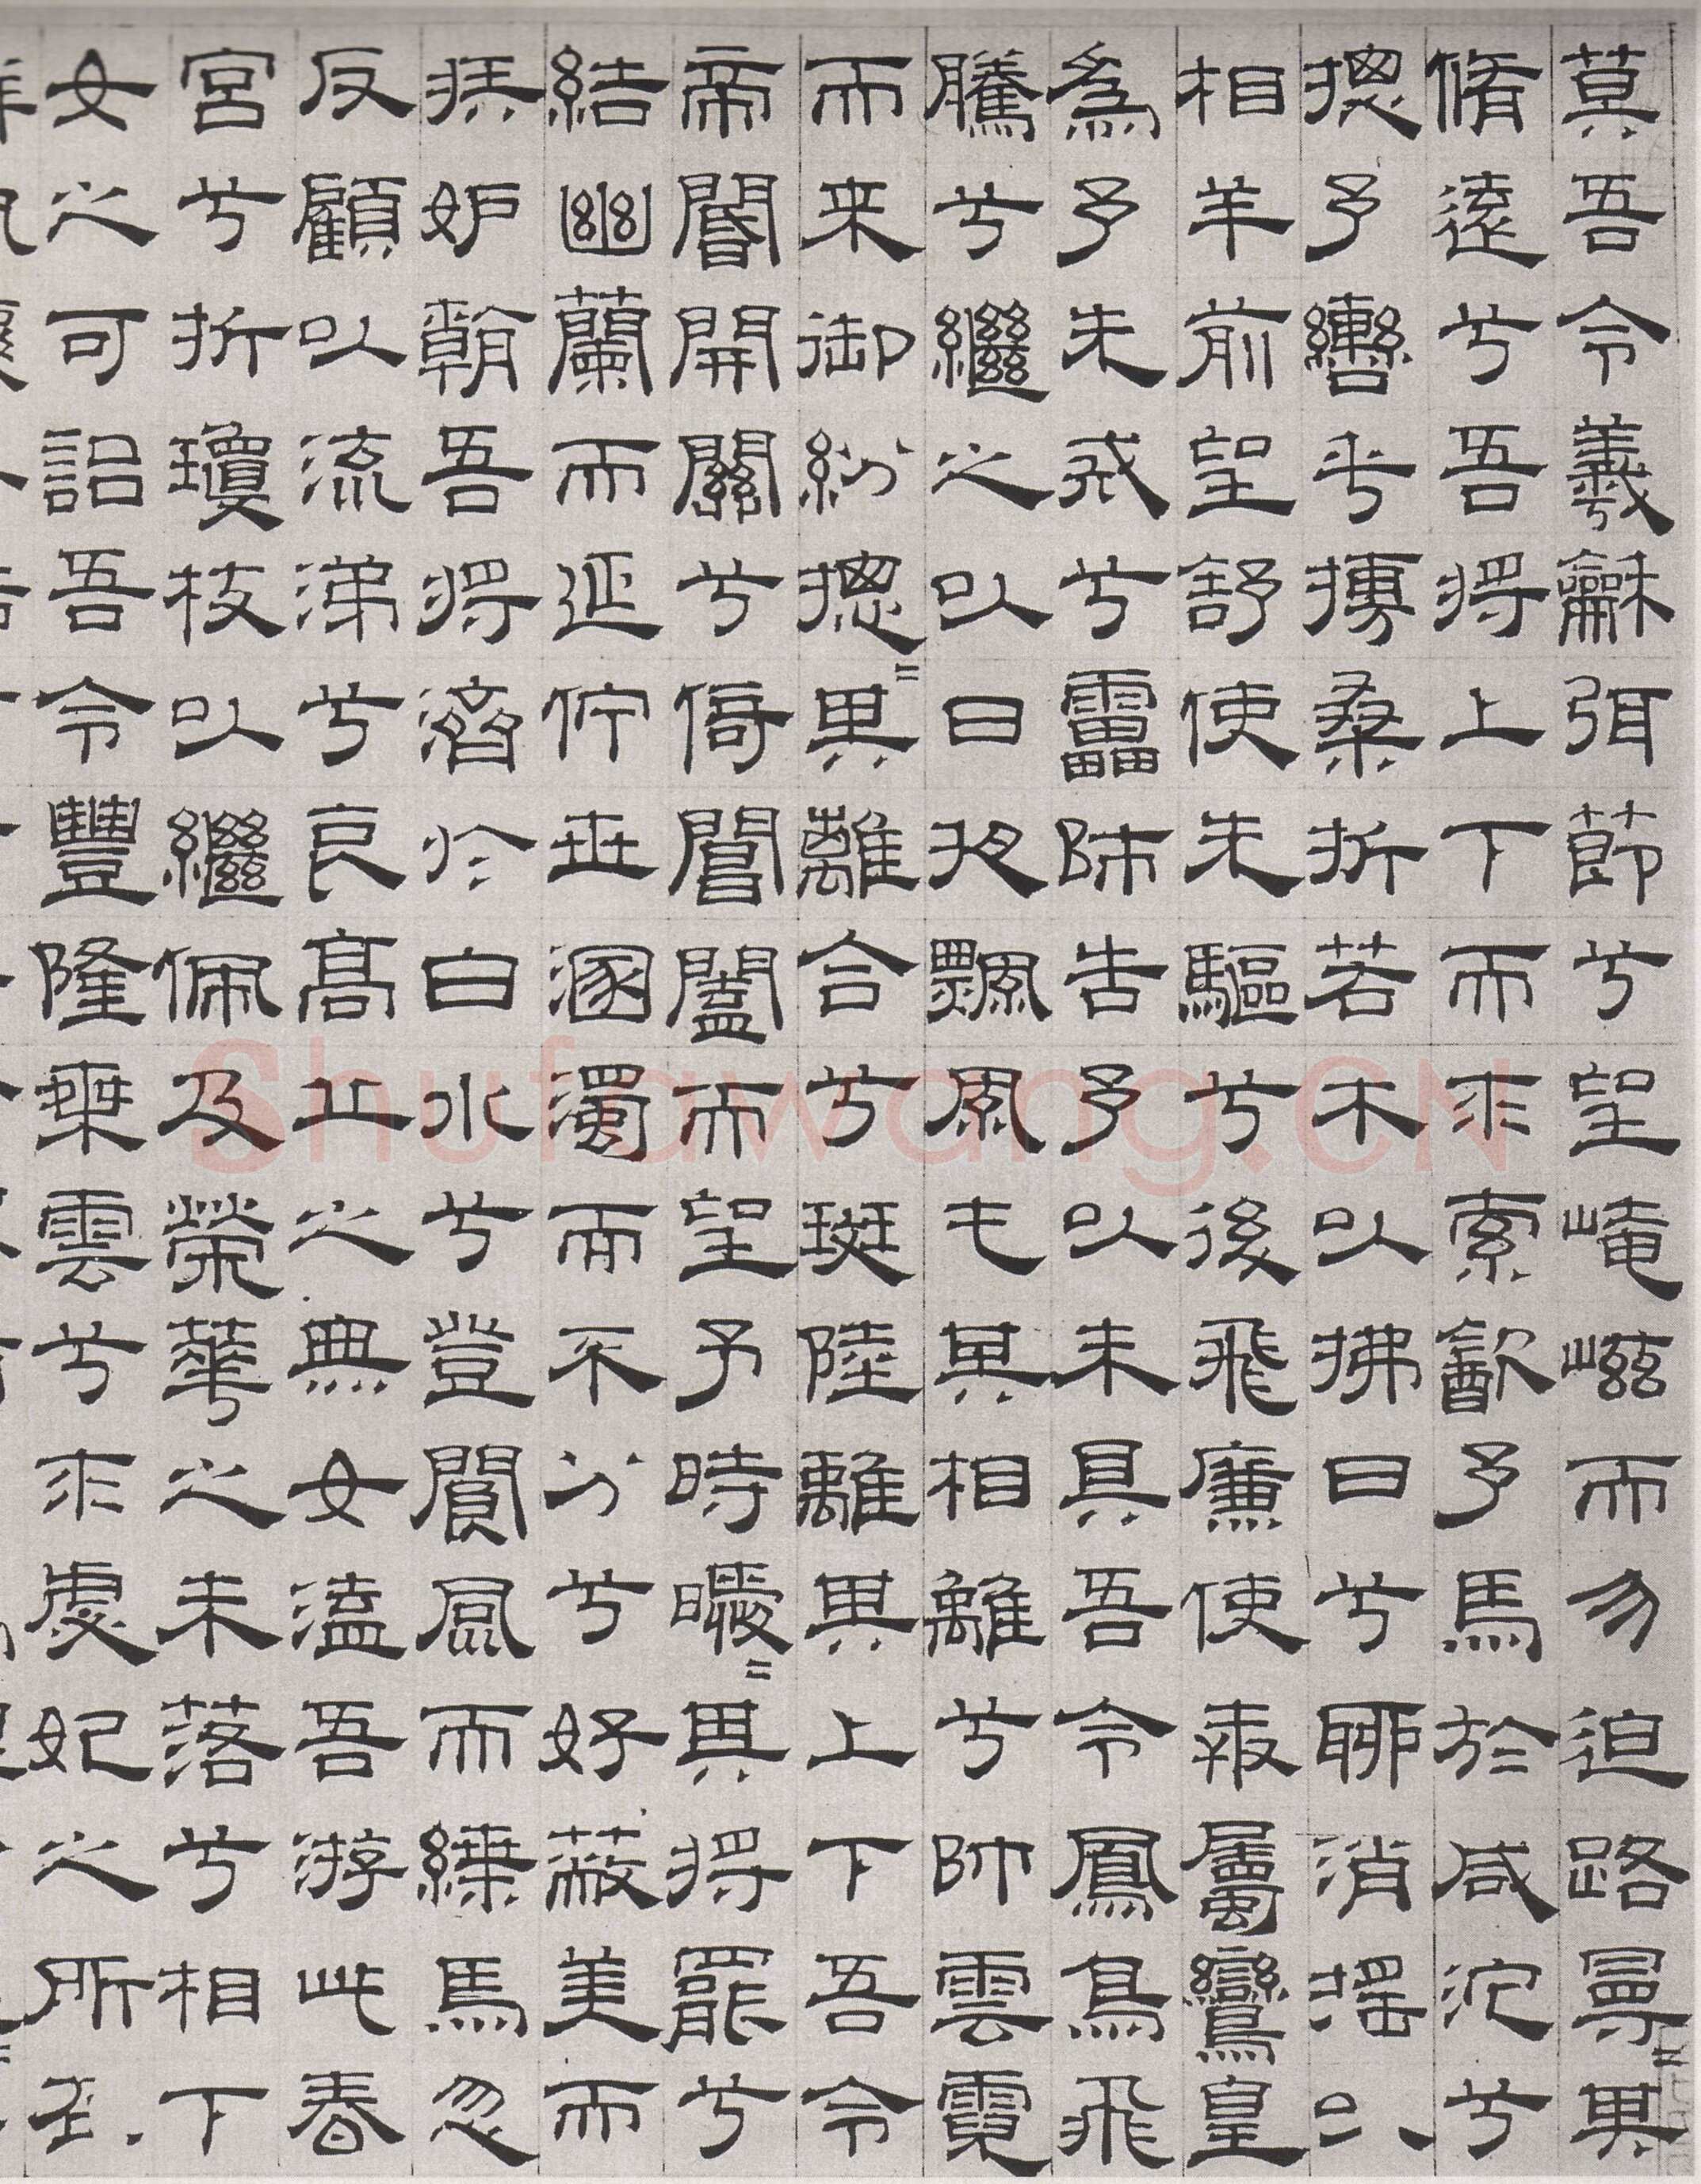 莫吾令羲龢弭節兮望崦嵫而勿迫路曼=其
脩遠兮吾將上下而求索飲予馬於咸沱兮
摠予轡乎搏桑折若木以拂日兮聊消搖以
相羊前望舒使先驅兮後飛廉使奔屬鸞皇
為予先戒兮雷師告予以未具吾令鳳鳥飛
騰兮繼之以日夜飄風屯其相離兮帥雲霓
而来御紛摠=其離合兮斑陸離其上下吾令
帝閽開關兮倚閶闔而望予時曖=其將罷兮
結幽蘭而延佇世溷濁而不分兮好蔽美而
嫉妒朝吾將濟於白水兮登閬風而緤馬忽
反顧以流涕兮哀高丘之無女溘吾游此春
宮兮折瓊枝以繼佩及榮華之未落兮相下
女之可詒吾令豐隆乘雲兮求虙妃之所在
Shufawang.CN